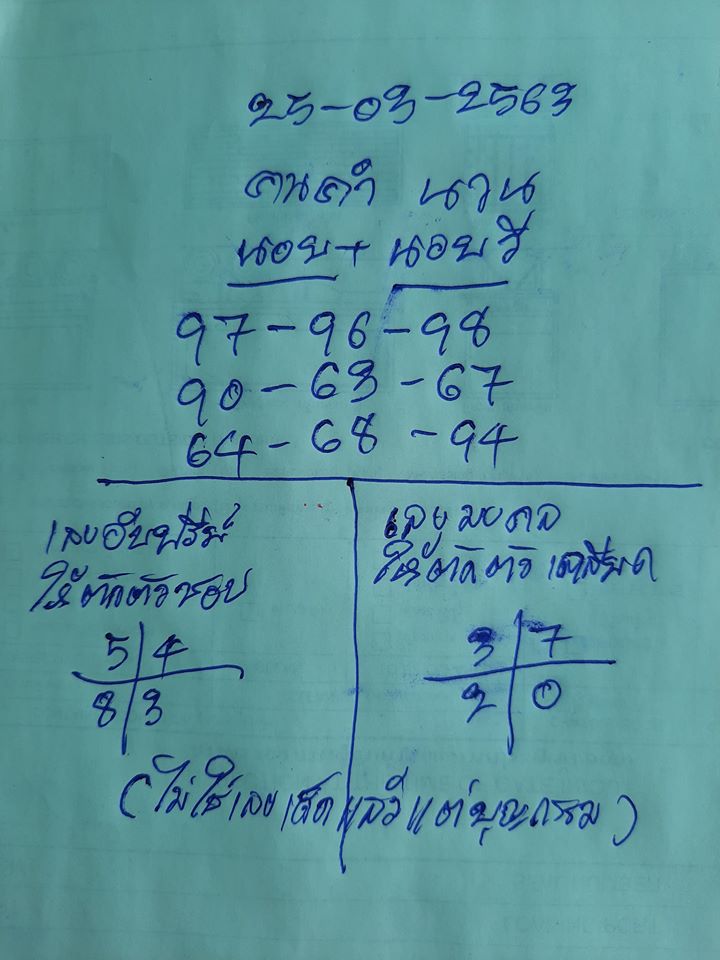 25-03-2563
คนคำ นวน
นอย + นอยวี
97-96-98
90-63-67
64-68-94
เลขอับปรีย์
ให้ตัดตัวชอบ
5 4
8 3
เลขมงคล
ให้ตัดตัวเกลียด
3 7
2 0
(ไม่ใช่เลขเด็ดแล้วแต่บุญกรรม)